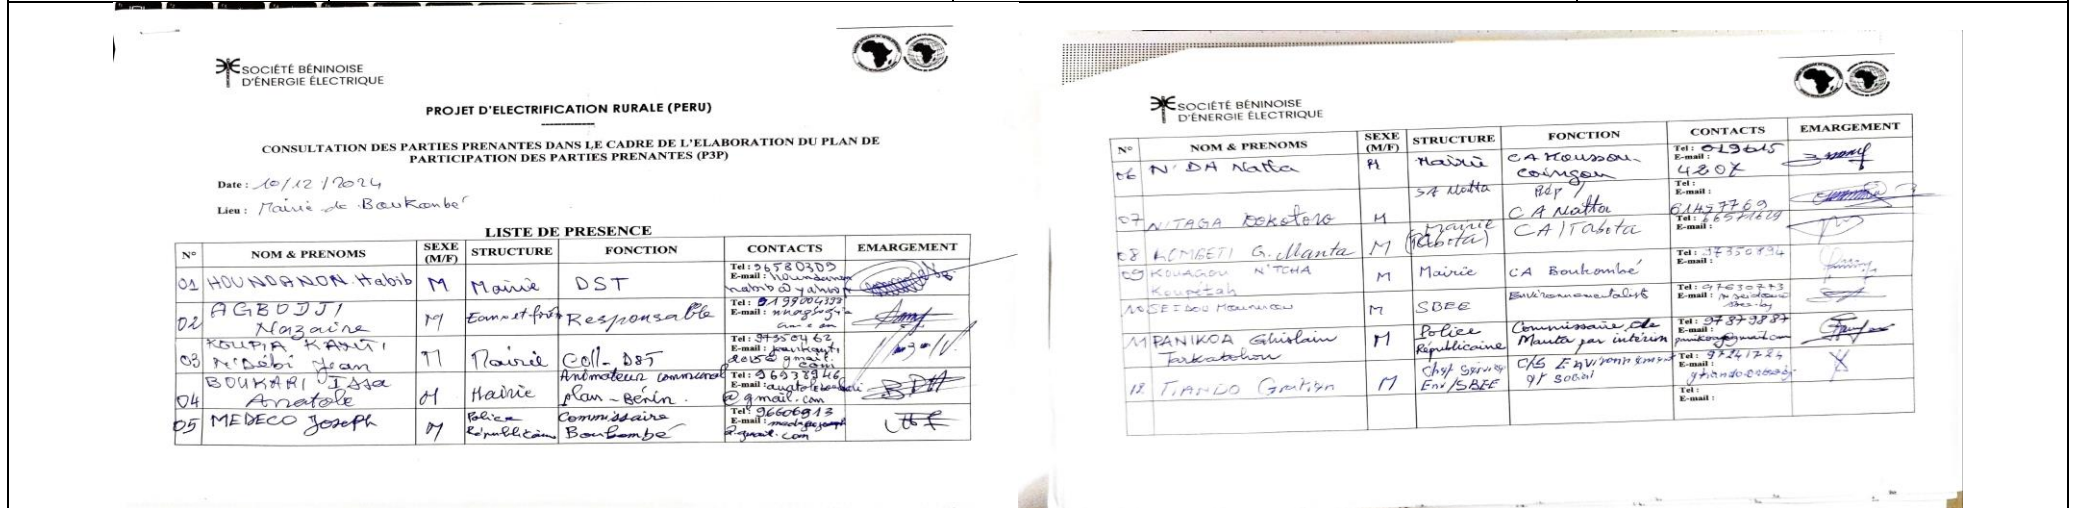 SOCIÉTÉ BÉNINOISE
D'ÉNERGIE ÉLECTRIQUE
PROJET D'ELECTRIFICATION RURALE (PERU)
CONSULTATION DES PARTIES PRENANTES DANS LE CADRE DE L'ELABORATION DU PLAN DE
PARTICIPATION DES PARTIES PRENANTES (P3P)
Date : 10/12/2024
Lieu : Mairie de Boukombé
LISTE DE PRESENCE
N° NOM & PRENOMS SEXE (M/F) STRUCTURE FONCTION CONTACTS EMARGEMENT
01 HOUNDANON Habib M Mairie DST Tel : 96580309 E-mail :
02 AGBODJI Nazaire M Responsable Tel : E-mail :
03 KOUPIA N'Débi Jean M Mairie Coll-DST Tel : 97350462 E-mail : gmail.com
04 BOUKARI Issa Anatole M Mairie Animateur communal plan-Bénin. Tel : 96938946 E-mail : @gmail.com
05 MEDECO Joseph M Police Républicaine Commissaire Boukombé Tel : 96606913 E-mail : @gmail.com
SOCIÉTÉ BÉNINOISE
D'ÉNERGIE ÉLECTRIQUE
N° NOM & PRENOMS SEXE (M/F) STRUCTURE FONCTION CONTACTS EMARGEMENT
06 N'DA Natta M Mairie CA Tel : 019615 4207 E-mail :
07 NITAGA M SA Natta CA Natta Tel : 61457769 E-mail :
08 G. Manta M Mairie (Tabota) CA/Tabota Tel : E-mail :
09 KOUAGOU N'TCHA M Mairie CA Boukombé Tel : 97350894 E-mail :
10 M SBEE Environnementaliste Tel : 97630773 E-mail :
11 PANIKOA Ghislain M Police Républicaine Commissaire de Manta par intérim Tel : 97879887 E-mail :
12 TIANDO Gratien M Chef Service Env/SBEE C/S Environnement et social Tel : 97241724 E-mail :
Tel :
E-mail :